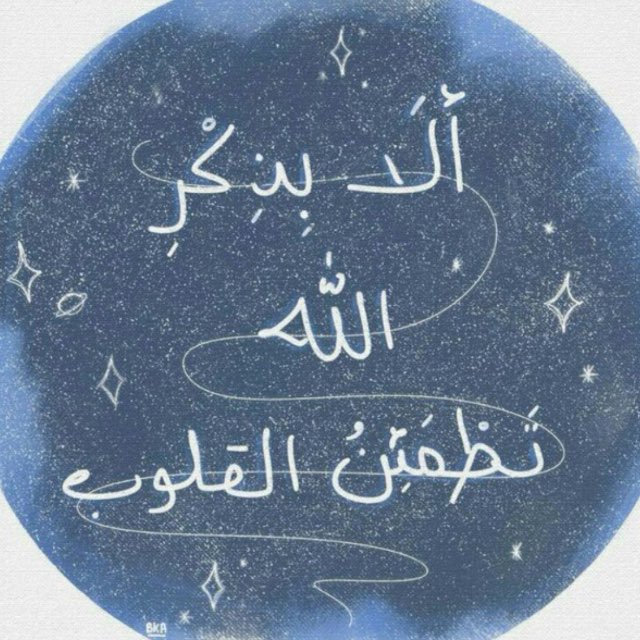 أَلَا بِذِكْرِ
الله
تَطْمَئِنُ القلوب
BKA